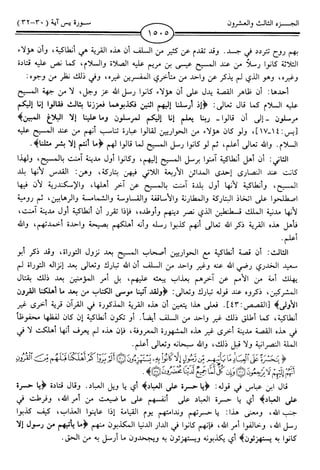 الجزء الثالث والعشرون
سورة يس آية (٣٠-٣٢)
١٥٠٥
بهم روح تتردد في جسد. وقد تقدم عن كثير من السلف أن هذه القرية هي أنطاكية، وأن هؤلاء
الثلاثة كانوا رسلاً من عند المسيح عيسى بن مريم عليه الصلاة والسلام، كما نص عليه قتادة
وغيره، وهو الذي لم يذكر عن واحد من متأخري المفسرين غيره، وفي ذلك نظر من وجوه:
أحدها: أن ظاهر القصة يدل على أن هؤلاء كانوا رسل الله عز وجل، لا من جهة المسيح
عليه السلام كما قال تعالى: ﴿إذ أرسلنا إليهم اثنين فكذبوهما فعززنا بثالث فقالوا إنا إليكم
مرسلون - إلى أن قالوا- ربنا يعلم إنا إليكم لمرسلون وما علينا إلا البلاغ المبين﴾
[يس: ١٤-١٧]، ولو كان هؤلاء من الحواريين لقالوا عبارة تناسب أنهم من عند المسيح عليه
السلام. والله تعالى أعلم، ثم لو كانوا رسل المسيح لما قالوا لهم ﴿ما أنتم إلا بشر مثلنا﴾.
الثاني: أن أهل أنطاكية آمنوا برسل المسيح إليهم، وكانوا أول مدينة آمنت بالمسيح، ولهذا
كانت عند النصارى إحدى المدائن الأربعة اللاتي فيهن بتاركة، وهن: القدس لأنها بلد
المسيح، وأنطاكية لأنها أول بلدة آمنت بالمسيح عن آخر أهلها، والإسكندرية لأن فيها
اصطلحوا على اتخاذ البتاركة والمطارنة والأساقفة والقساوسة والشمامسة والرهابين، ثم رومية
لأنها مدينة الملك قسطنطين الذي نصر دينهم وأوطده، فإذا تقرر أن أنطاكية أول مدينة آمنت،
فأهل هذه القرية ذكر الله تعالى أنهم كذبوا رسله وأنه أهلكهم بصيحة واحدة أخمدتهم، والله
أعلم.
الثالث: أن قصة أنطاكية مع الحواريين أصحاب المسيح بعد نزول التوراة، وقد ذكر أبو
سعيد الخدري رضي الله عنه وغير واحد من السلف أن الله تبارك وتعالى بعد إنزاله التوراة لم
يهلك أمة من الأمم عن آخرهم بعذاب يبعثه عليهم، بل أمر المؤمنين بعد ذلك بقتال
المشركين، ذكروه عند قوله تبارك وتعالى: ﴿ولقد آتينا موسى الكتاب من بعد ما أهلكنا القرون
الأولى﴾ [القصص: ٤٣]. فعلى هذا يتعين أن هذه القرية المذكورة في القرآن قرية أخرى غير
أنطاكية، كما أطلق ذلك غير واحد من السلف أيضاً. أو تكون أنطاكية إن كان لفظها محفوظاً
في هذه القصة مدينة أخرى غير هذه المشهورة المعروفة، فإن هذه لم يعرف أنها أهلكت لا في
الملة النصرانية ولا قبل ذلك، والله سبحانه وتعالى أعلم.
قال ابن عباس في قوله: ﴿يا حسرة على العباد﴾ أي يا ويل العباد. وقال قتادة ﴿يا حسرة
على العباد﴾ أي يا حسرة العباد على أنفسهم على ما ضيعت من أمر الله، وفرطت في
جنب الله، ومعنى هذا: يا حسرتهم وندامتهم يوم القيامة إذا عاينوا العذاب، كيف كذبوا
رسل الله، وخالفوا أمر الله، فإنهم كانوا في الدار الدنيا المكذبون منهم ﴿ما يأتيهم من رسول إلا
كانوا به يستهزئون﴾ أي يكذبونه ويستهزئون به ويجحدون ما أرسل به من الحق.